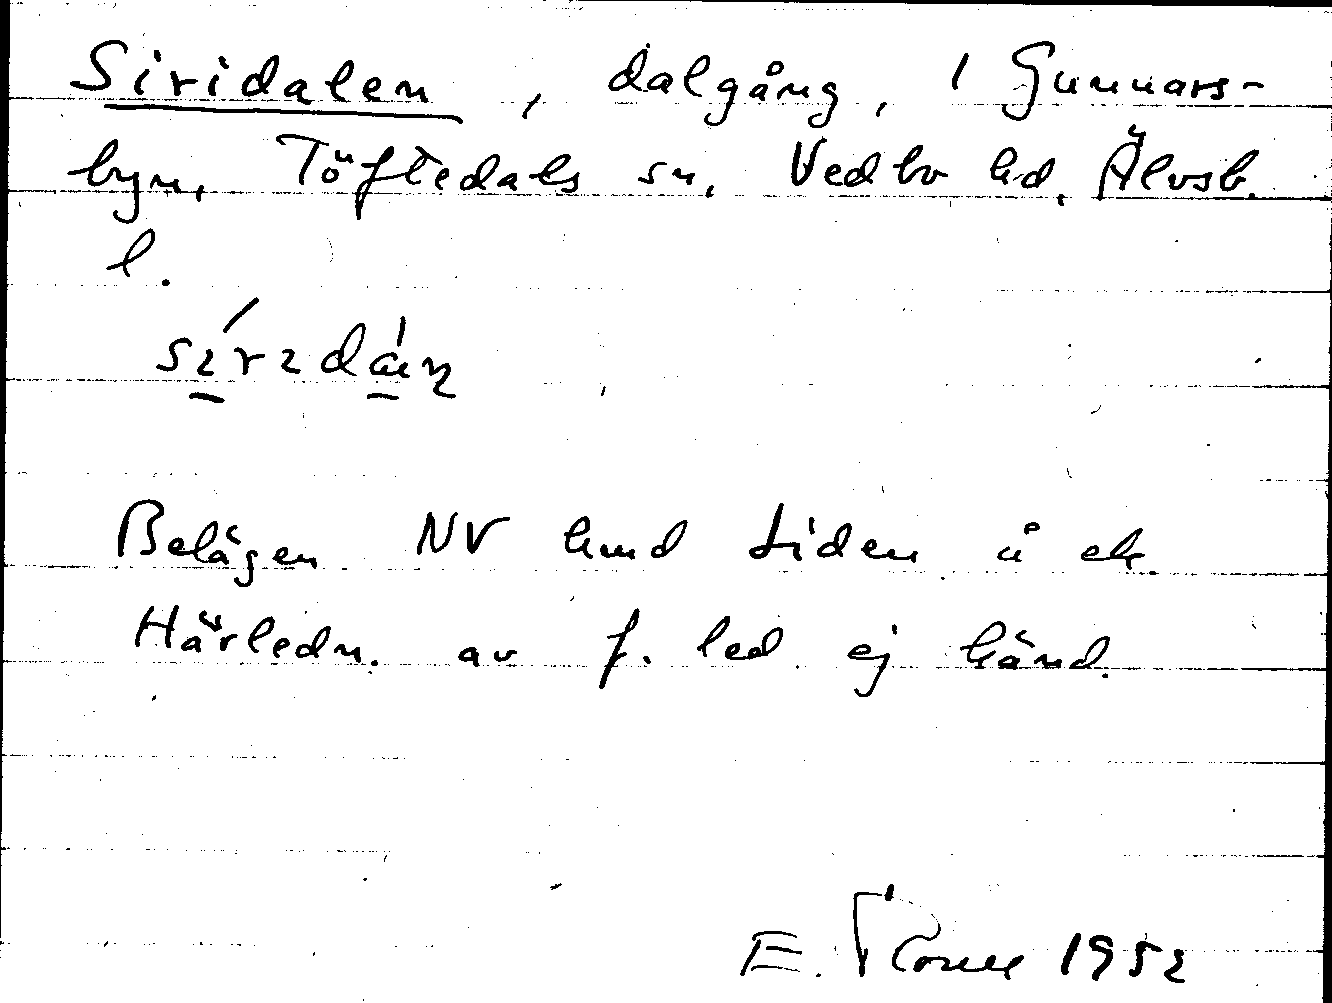 Siridalen, dalgång, 1 Gunnars-
byn, Töftedals sn, Vedbo hd. Älvsb.
l.
Belägen NV hmd Liden å ek.
Härledn. av f. led ej känd.
E. 1952